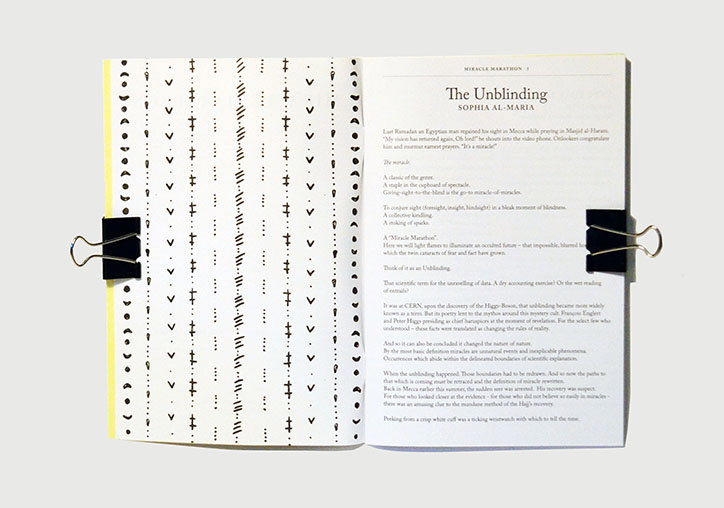 MIRACLE MARATHON 3
The Unblinding
SOPHIA AL-MARIA
Last Ramadan an Egyptian man regained his sight in Mecca while praying in Masjid al-Haram.
"My vision has returned again, Oh lord!" he shouts into the video phone. Onlookers congratulate
him and murmur earnest prayers. "It's a miracle!"
The miracle.
A classic of the genre.
A staple in the cupboard of spectacle.
Giving-sight-to-the-blind is the go-to miracle-of-miracles.
To conjure sight (foresight, insight, hindsight) in a bleak moment of blindness.
A collective kindling.
A stoking of sparks.
A "Miracle Marathon".
Here we will light flames to illuminate an occulted future – that impossible, blurred
which the twin cataracts of fear and fact have grown.
Think of it as an Unblinding.
That scientific term for the unravelling of data. A dry accounting exercise? Or the wet reading
of entrails?
It was at CERN, upon the discovery of the Higgs-Boson, that unblinding became more widely
known as a term. But its poetry lent to the mythos around this mystery cult. François Englert
and Peter Higgs presiding as chief haruspices at the moment of revelation. For the select few who
understood – these facts were translated as changing the rules of reality.
And so it can also be concluded it changed the nature of nature.
By the most basic definition miracles are unnatural events and inexplicable phenomena.
Occurrences which abide within the delineated boundaries of scientific explanation.
When the unblinding happened. Those boundaries had to be redrawn. And so now the paths to
that which is coming must be retraced and the definition of miracle rewritten.
Back in Mecca earlier this summer, the sudden seer was arrested. His recovery was suspect.
For those who looked closer at the evidence - for those who did not believe so easily in miracles -
there was an amusing clue to the mundane method of the Hajj's recovery.
Peeking from a crisp white cuff was a ticking wristwatch with which to tell the time.